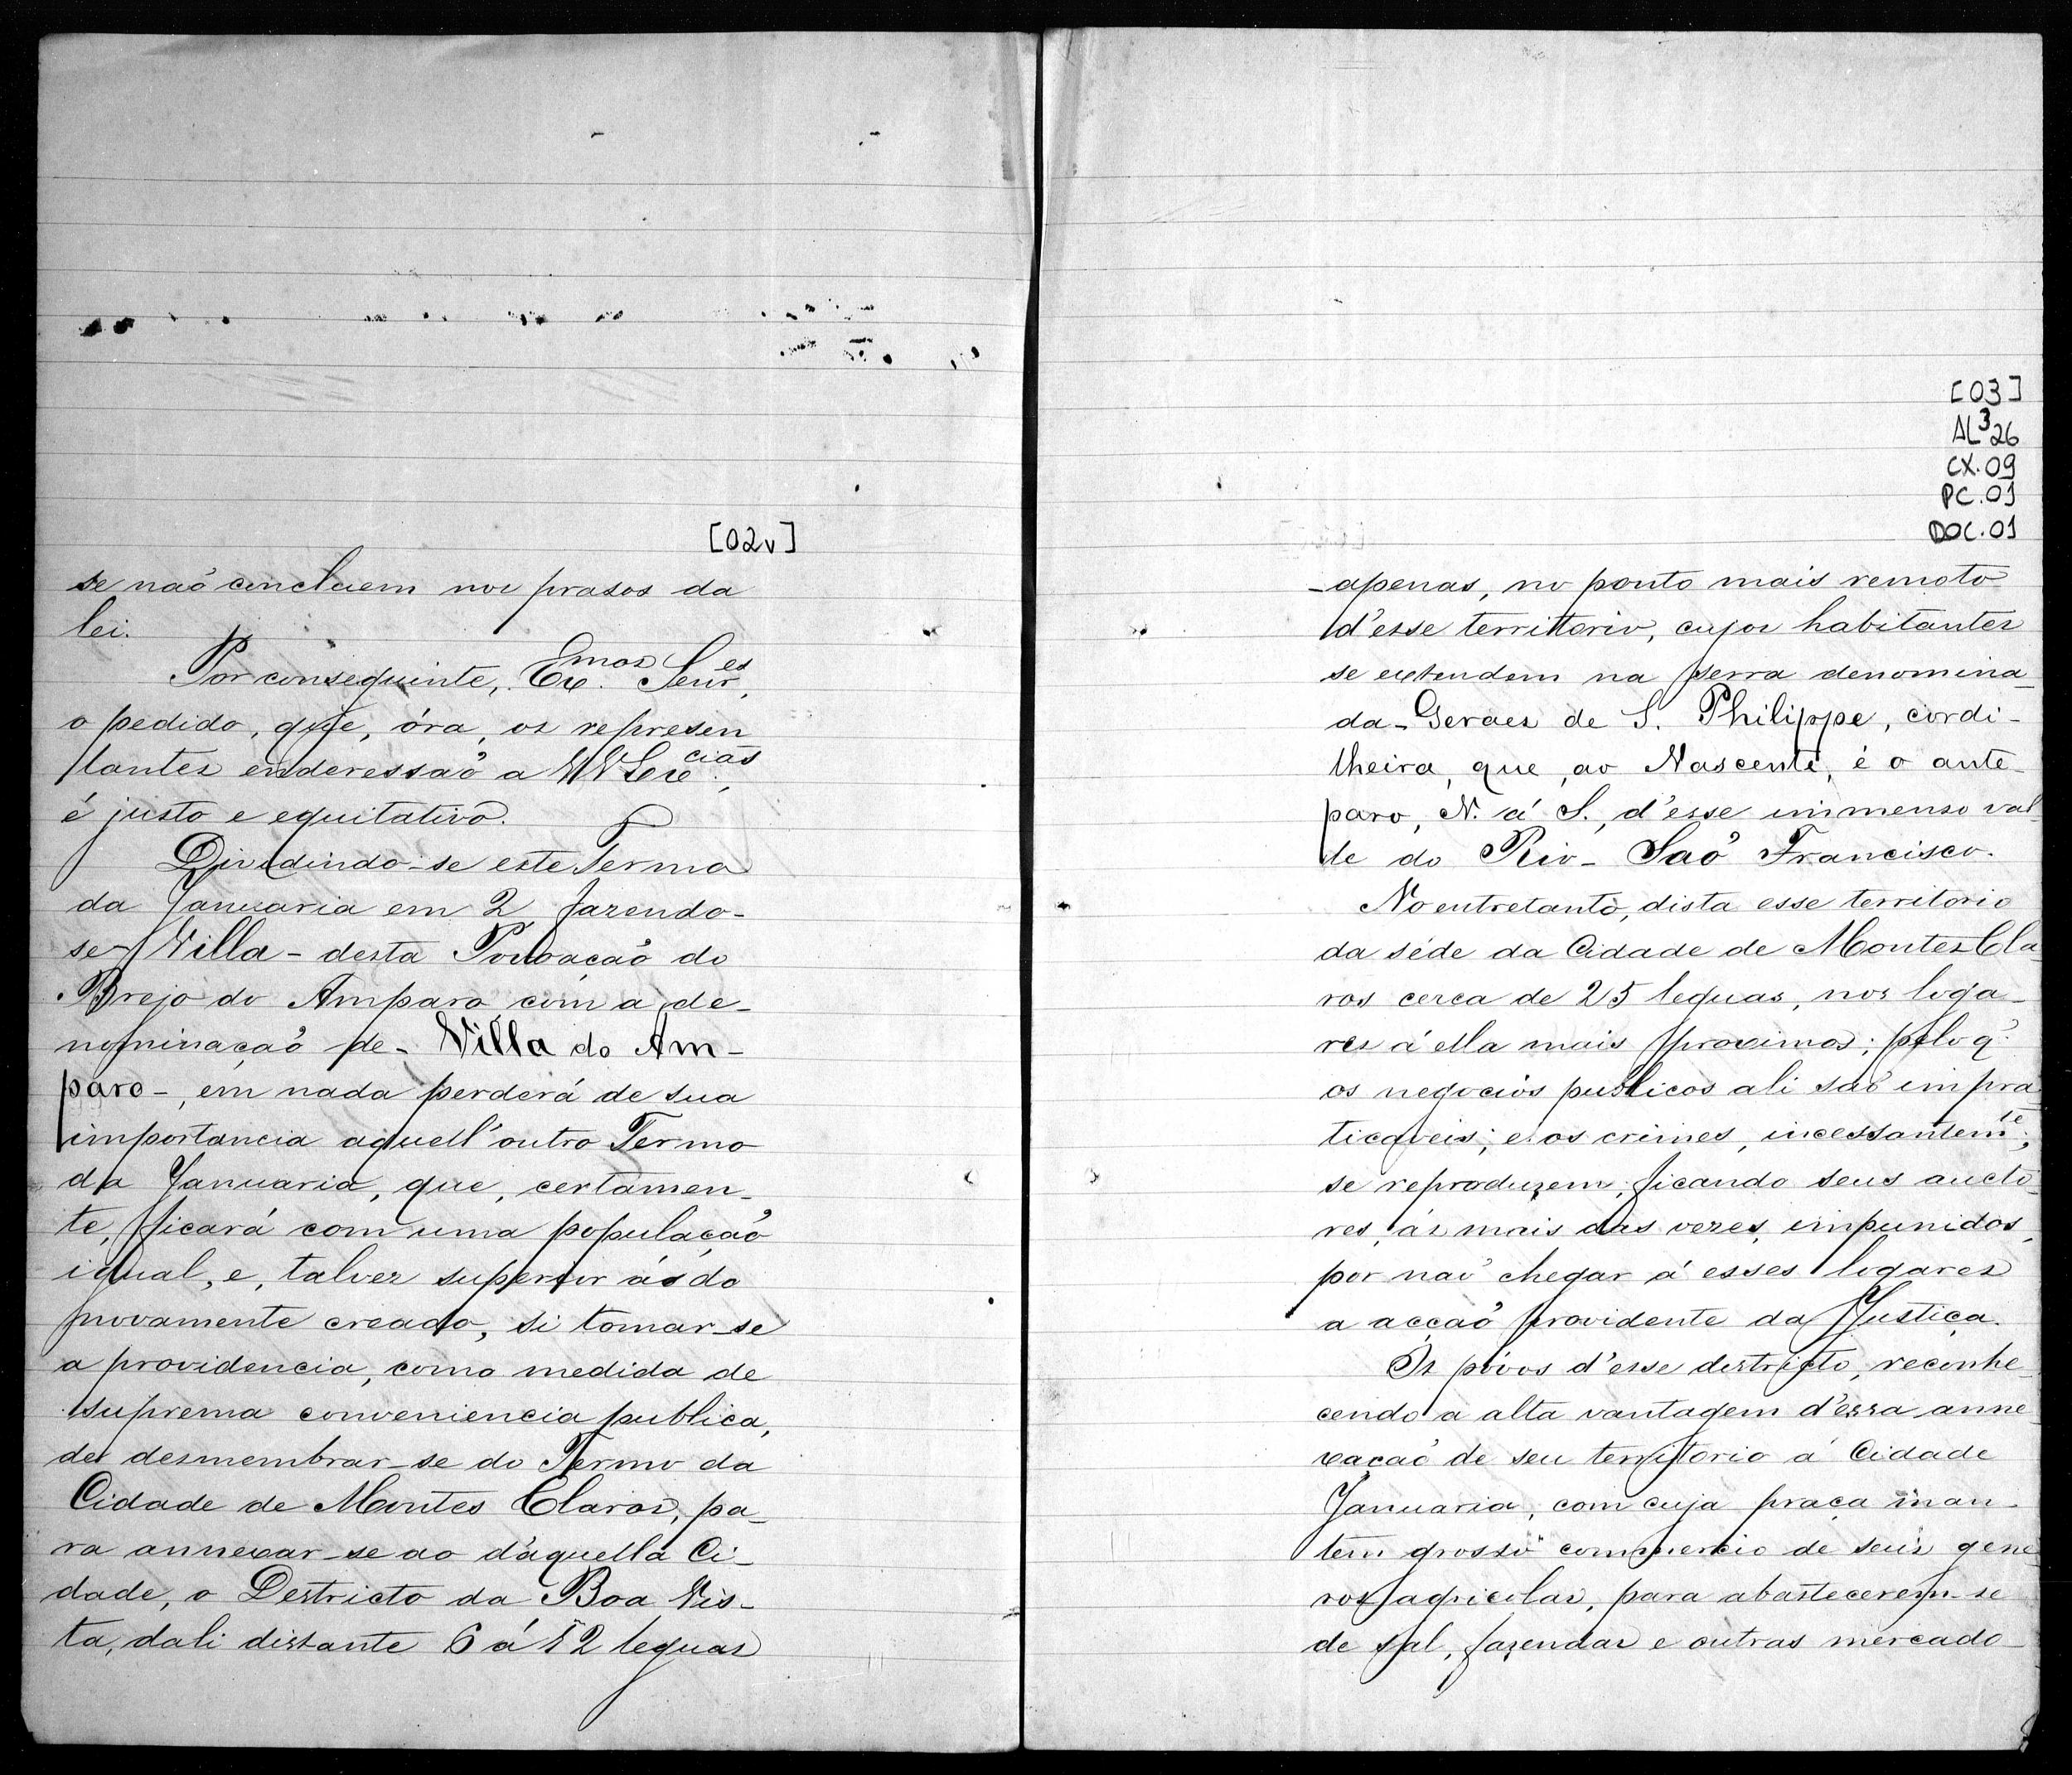 [02v]
se naõ concluem nos prasos da
lei.
Por conseguinte, Ex.mos Senr.es,
o pedido, que, óra, os represen
tantes enderessaõ a VV Ex.cias,
é justo e equitativo.
Dividindo-se este Termo
da Januaria em 2, fazendo-
se Villa - desta Povoaçaõ do
Brejo do Amparo com a de-
nominaçaõ de - Villa do Am-
paro -, em nada perderá de sua
importancia aquell'outro Termo
da Januaria, que, certamen-
te, ficará com uma populaçaõ
igual, e, talvez superior ás do
novamente creado, si tomar-se
a providencia, como medida de
suprema conveniencia publica,
de desmembrar-se do Termo da
Cidade de Montes Claros, pa-
ra annexar-se ao d'aquella Ci-
dade, o Destricto da Boa Vis-
ta, dali distante 6 á 12 leguas
[03]
AL3 26
CX.09
PC.01
DOC.01
-apenas, no ponto mais remoto
d'esse territorio, cujos habitantes
se extendem na serra denomina-
da - Geraes de S. Philippe, cordi-
lheira, que, ao Nascente, é o ante-
paro, N. á S., d'esse immenso val-
le do Rio - Saõ Francisco.
No entretanto, dista esse territorio
da séde da Cidade de Montes Cla
ros cerca de 25 leguas, nos loga-
res á ella mais proximos; pelo q'
os negocios publicos ali saõ impra
ticaveis; e os crimes, incessantem.te,
se reproduzem, ficando seus aucto-
res, ás mais das vezes, impunidos,
por naõ chegar á esses logares
a acçaõ providente da Justiça.
Os póvos d'esse destricto, reconhe-
cendo a alta vantagem d'essa anne
xaçaõ de seu territorio á Cidade
Januaria, com cuja praça man-
tem grosso commercio de seus gene
ros agricolas, para abastecerem-se
de sal, fazendas e outras mercado-